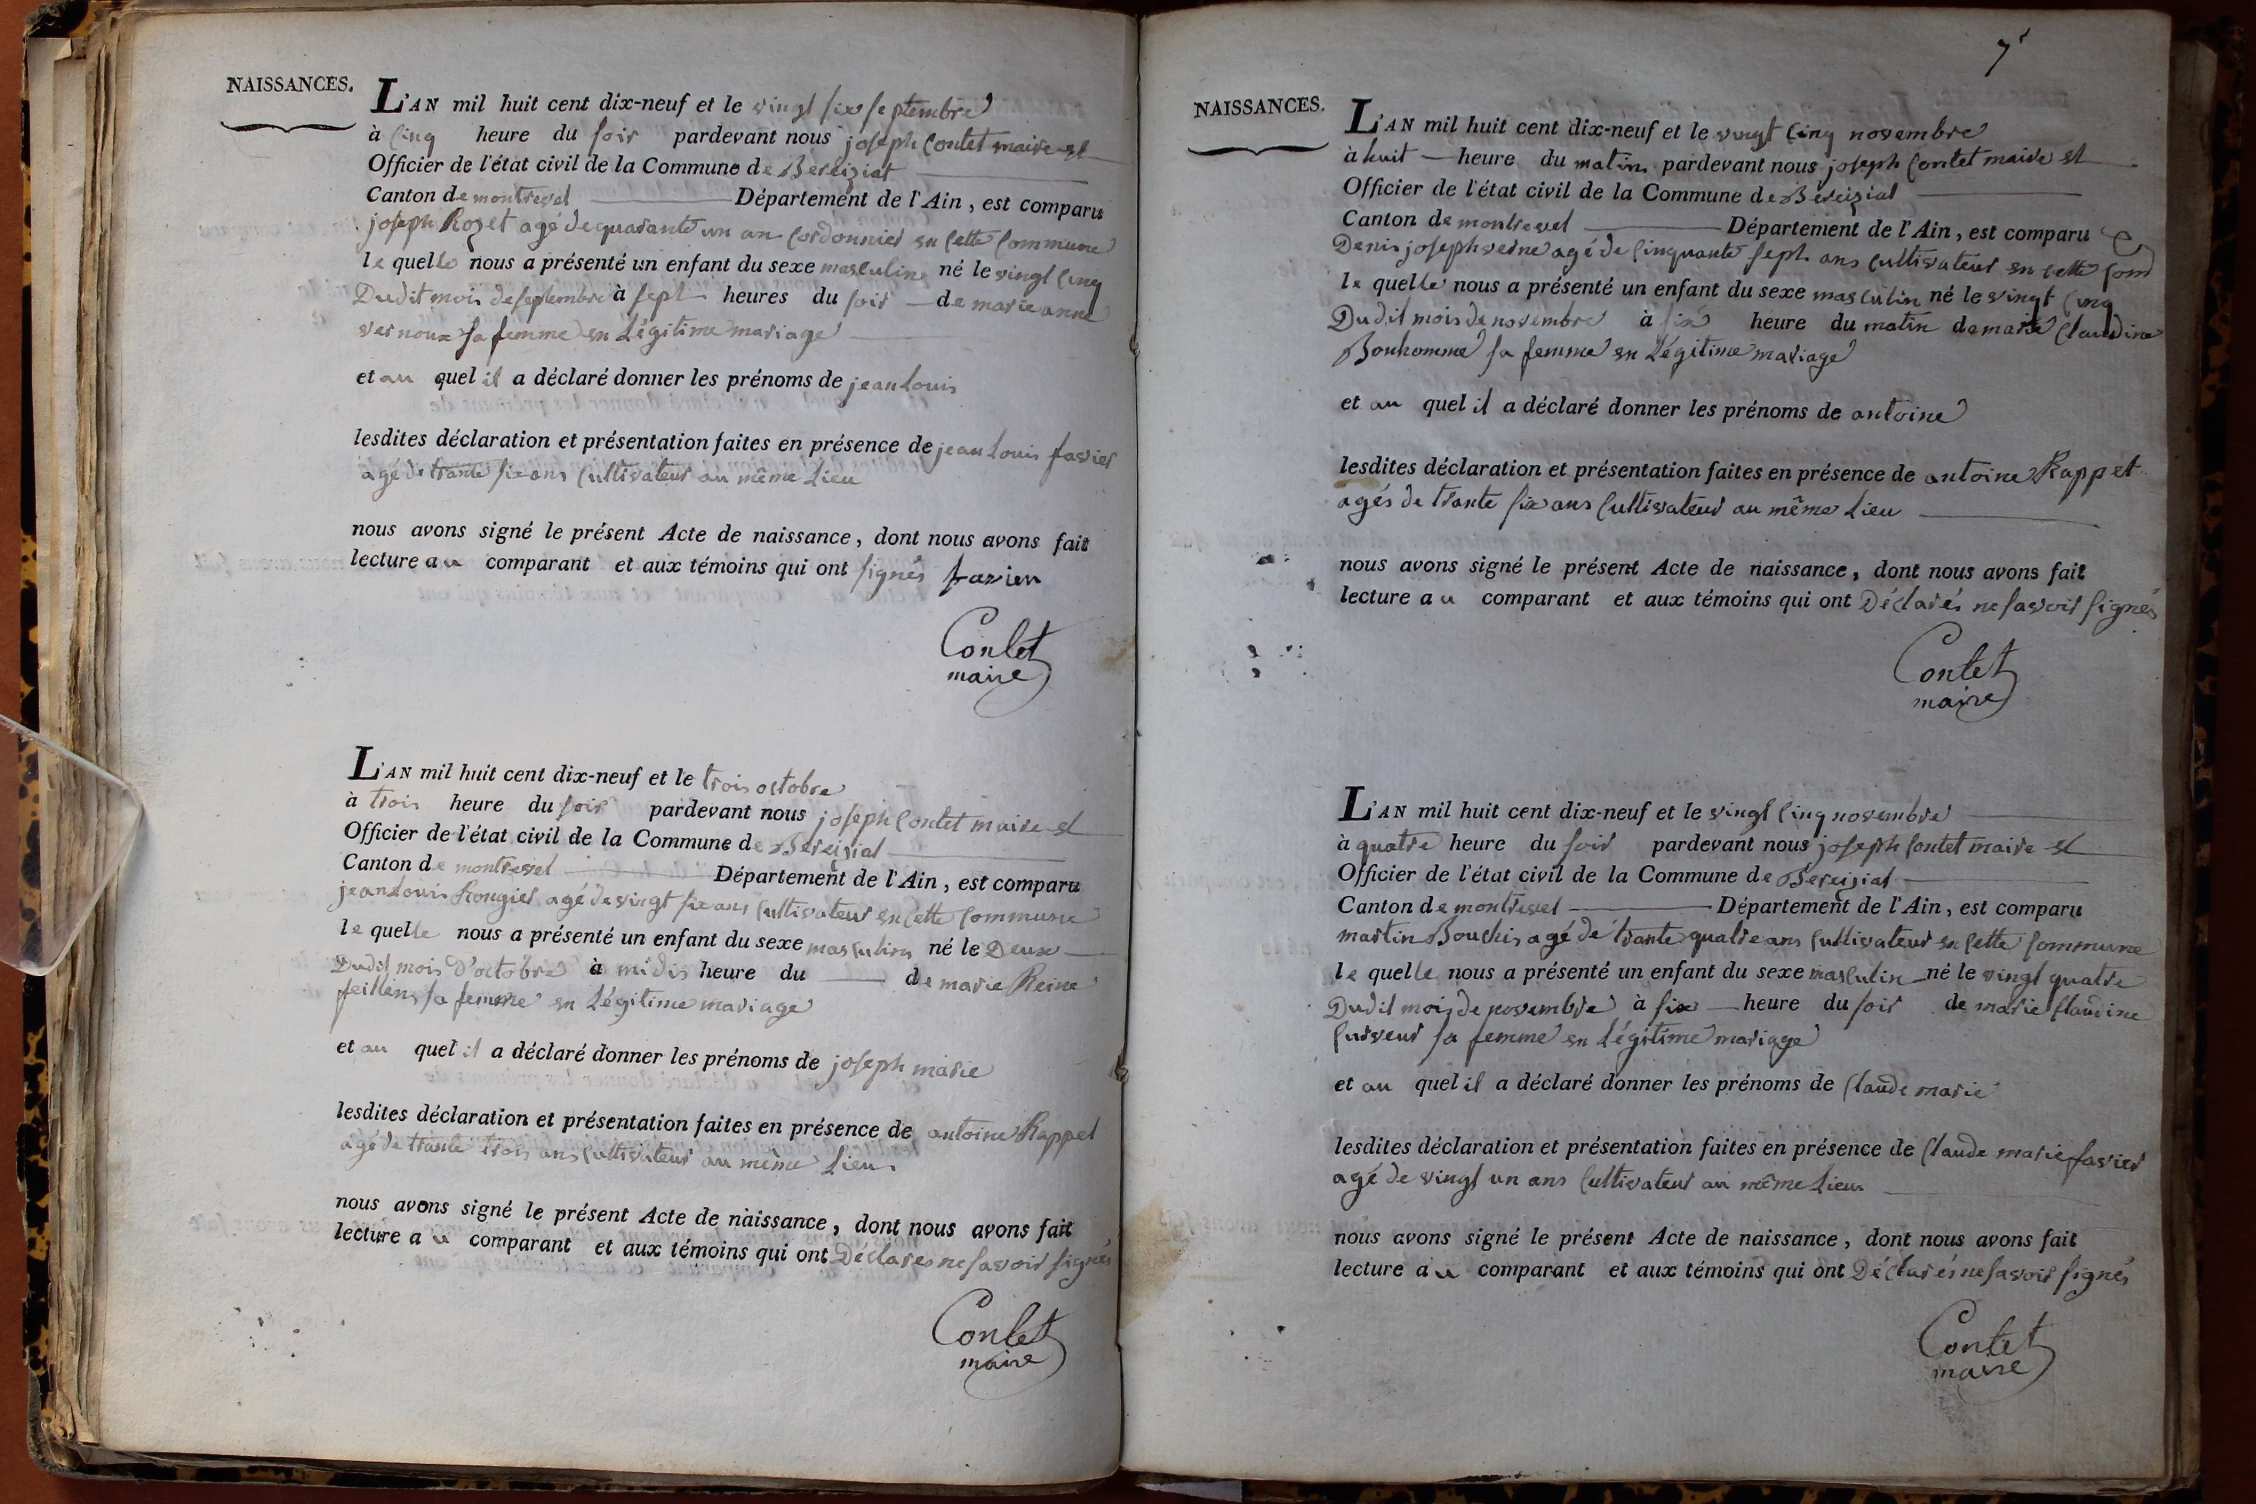 NAISSANCES.
L'AN mil huit cent dix-neuf et le vingt six septembre
à cinq heure du soir pardevant nous joseph Contet maire et
Officier de l'état civil de la Commune de Bereiziat
Canton de montrevel Département de l'Ain, est comparu
joseph Rozet agé de quarante un an Cordonnier en cette Commune
le quelle nous a présenté un enfant du sexe masculin né le vingt cinq
Dudit mois de septembre à sept heures du soir de marie anne
vernoux sa femme en Légitime mariage
et au quel il a déclaré donner les prénoms de jean Louis
lesdites déclaration et présentation faites en présence de jean Louis favier
agé de trante six ans Cultivateur au même Lieu
nous avons signé le présent Acte de naissance, dont nous avons fait
lecture au comparant et aux témoins qui ont signés favier
Contet
maire
L'AN mil huit cent dix-neuf et le trois octobre
à trois heure du soir pardevant nous joseph Contet maire et
Officier de l'état civil de la Commune de Bereiziat
Canton de montrevel Département de l'Ain, est comparu
jean Louis Rongier agé de vingt six ans Cultivateur en Cette Commune
le quelle nous a présenté un enfant du sexe masculin né le Deux
Dudit mois D'octobre à midis heure du de marie Reine
feillens sa femme en Légitime mariage
et au quel il a déclaré donner les prénoms de joseph marie
lesdites déclaration et présentation faites en présence de antoine Rappet
agé de trante trois ans Cultivateur au même Lieu
nous avons signé le présent Acte de naissance, dont nous avons fait
lecture au comparant et aux témoins qui ont Déclarés ne savoir signés
Contet
maire
7
NAISSANCES.
L'AN mil huit cent dix-neuf et le vingt Cinq novembre
à huit heure du matin pardevant nous joseph Contet maire et
Officier de l'état civil de la Commune de Bereiziat
Canton de montrevel Département de l'Ain, est comparu
Denis joseph verne agé de Cinquante sept ans Cultivateur en cette Com
le quelle nous a présenté un enfant du sexe masculin né le vingt Cinq
Dudit mois de novembre à six heure du matin de marie Claudine
Bonhomme sa femme en Légitime mariage
et au quel il a déclaré donner les prénoms de antoine
lesdites déclaration et présentation faites en présence de antoine Rappet
agés de trante six ans Cultivateur au même Lieu
nous avons signé le présent Acte de naissance, dont nous avons fait
lecture au comparant et aux témoins qui ont Déclarés ne savoir signés
Contet
maire
L'AN mil huit cent dix-neuf et le vingt Cinq novembre
à quatre heure du soir pardevant nous joseph Contet maire et
Officier de l'état civil de la Commune de Bereiziat
Canton de montrevel Département de l'Ain, est comparu
martin Bouchis agé de trante quatre ans Cultivateur en Cette Commune
le quelle nous a présenté un enfant du sexe masculin né le vingt quatre
Dudit mois de novembre à six heure du soir de marie Claudine
Curveur sa femme en Légitime mariage
et au quel il a déclaré donner les prénoms de Claude marie
lesdites déclaration et présentation faites en présence de Claude marie favier
agé de vingt un ans Cultivateur au même Lieu
nous avons signé le présent Acte de naissance, dont nous avons fait
lecture au comparant et aux témoins qui ont Déclarés ne savoir signés
Contet
maire